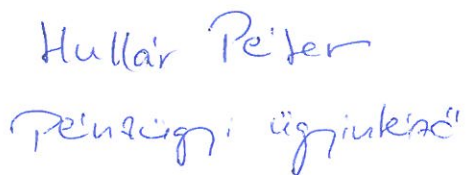 Hullár Péter
Pénzügyi ügyintéző